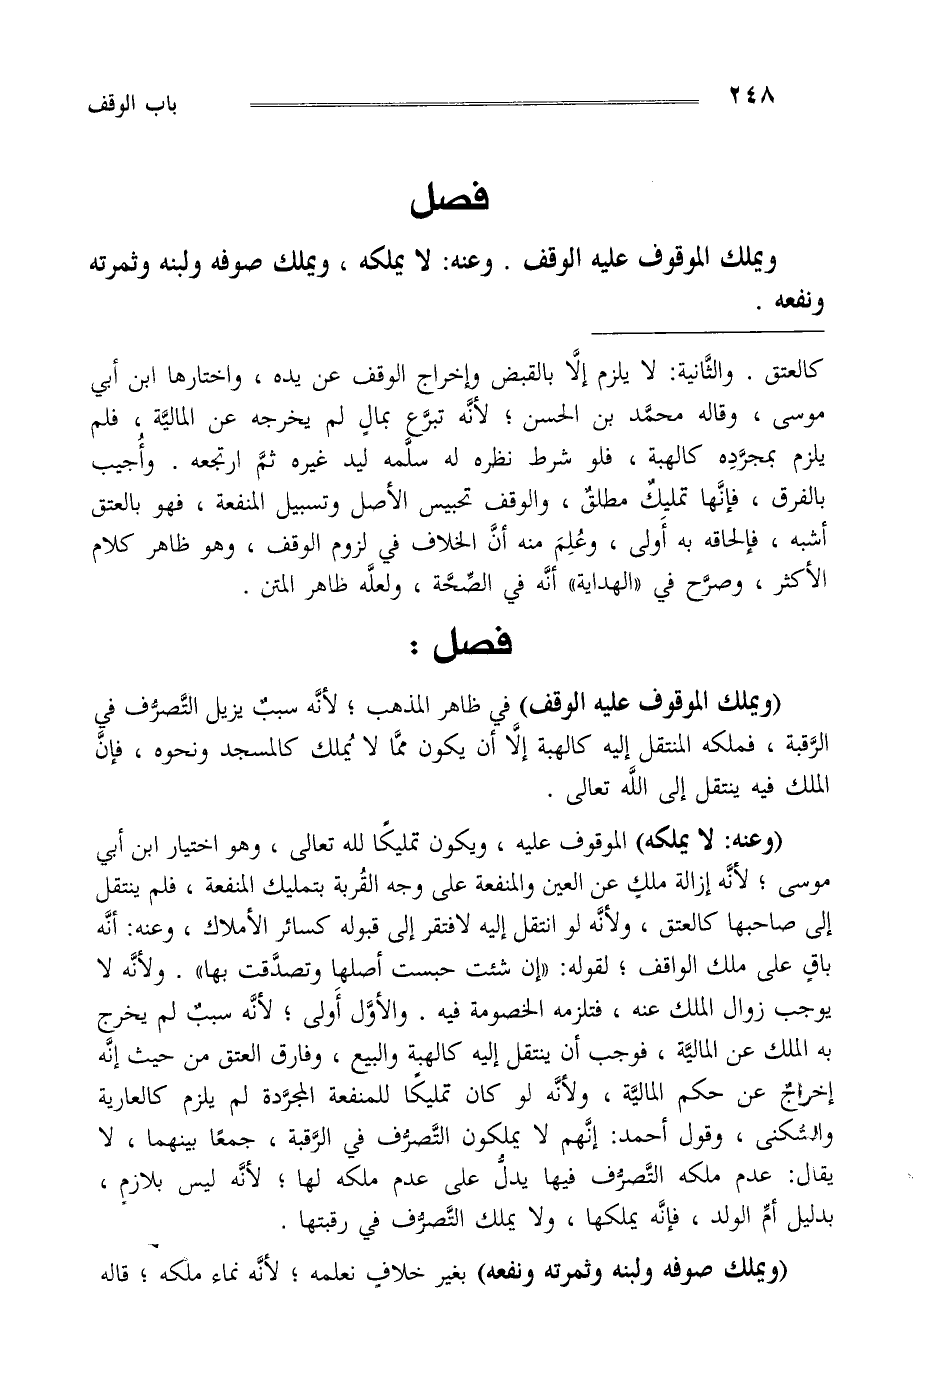 ٢٤٨
باب الوقف
فصل
ويملك الموقوف عليه الوقف . وعنه: لا يملكه ، ويملك صوفه ولبنه وثمرته
ونفعه .
كالعتق . والثَّانية: لا يلزم إلَّا بالقبض وإخراج الوقف عن يده ، واختارها ابن أبي
موسى ، وقاله محمَّد بن الحسن ؛ لأنَّه تبرَّع بمالٍ لم يخرجه عن الماليَّة ، فلم
يلزم بمجرَّدِه كالهبة ، فلو شرط نظره له سلَّمه ليد غيره ثمَّ ارتجعه . وأُجيب
بالفرق ، فإنَّها تمليكٌ مطلقٌ ، والوقف تحبيس الأصل وتسبيل المنفعة ، فهو بالعتق
أشبه ، فإلحاقه به أَولى ، وعُلِمَ منه أنَّ الخلاف في لزوم الوقف ، وهو ظاهر كلام
الأكثر ، وصرَّح في «الهداية» أنَّه في الصِّحَّة ، ولعلَّه ظاهر المتن .
فصل :
(ويملك الموقوف عليه الوقف) في ظاهر المذهب ؛ لأنَّه سببٌ يزيل التَّصرُّف في
الرَّقبة ، فملكه المنتقل إليه كالهبة إلَّا أن يكون ممَّا لا يُملك كالمسجد ونحوه ، فإنَّ
الملك فيه ينتقل إلى اللَّه تعالى .
(وعنه: لا يملكه) الموقوف عليه ، ويكون تمليكًا لله تعالى ، وهو اختيار ابن أبي
موسى ؛ لأنَّه إزالة ملكٍ عن العين والمنفعة على وجه القُربة بتمليك المنفعة ، فلم ينتقل
إلى صاحبها كالعتق ، ولأنَّه لو انتقل إليه لافتقر إلى قبوله كسائر الأملاك ، وعنه: أنَّه
باقٍ على ملك الواقف ؛ لقوله: «إن شئت حبست أصلها وتصدَّقت بها» . ولأنَّه لا
يوجب زوال الملك عنه ، فتلزمه الخصومة فيه . والأوَّل أَولى ؛ لأنَّه سببٌ لم يخرج
به الملك عن الماليَّة ، فوجب أن ينتقل إليه كالهبة والبيع ، وفارق العتق من حيث إنَّه
إخراجٌ عن حكم الماليَّة ، ولأنَّه لو كان تمليكًا للمنفعة المجرَّدة لم يلزم كالعارية
والسُّكنى ، وقول أحمد: إنَّهم لا يملكون التَّصرُّف في الرَّقبة ، جمعًا بينهما ، لا
يقال: عدم ملكه التَّصرُّف فيها يدلُّ على عدم ملكه لها ؛ لأنَّه ليس بلازمٍ ،
بدليل أمِّ الولد ، فإنَّه يملكها ، ولا يملك التَّصرُّف في رقبتها .
(ويملك صوفه ولبنه وثمرته ونفعه) بغير خلافٍ نعلمه ؛ لأنَّه نماء ملكه ؛ قاله